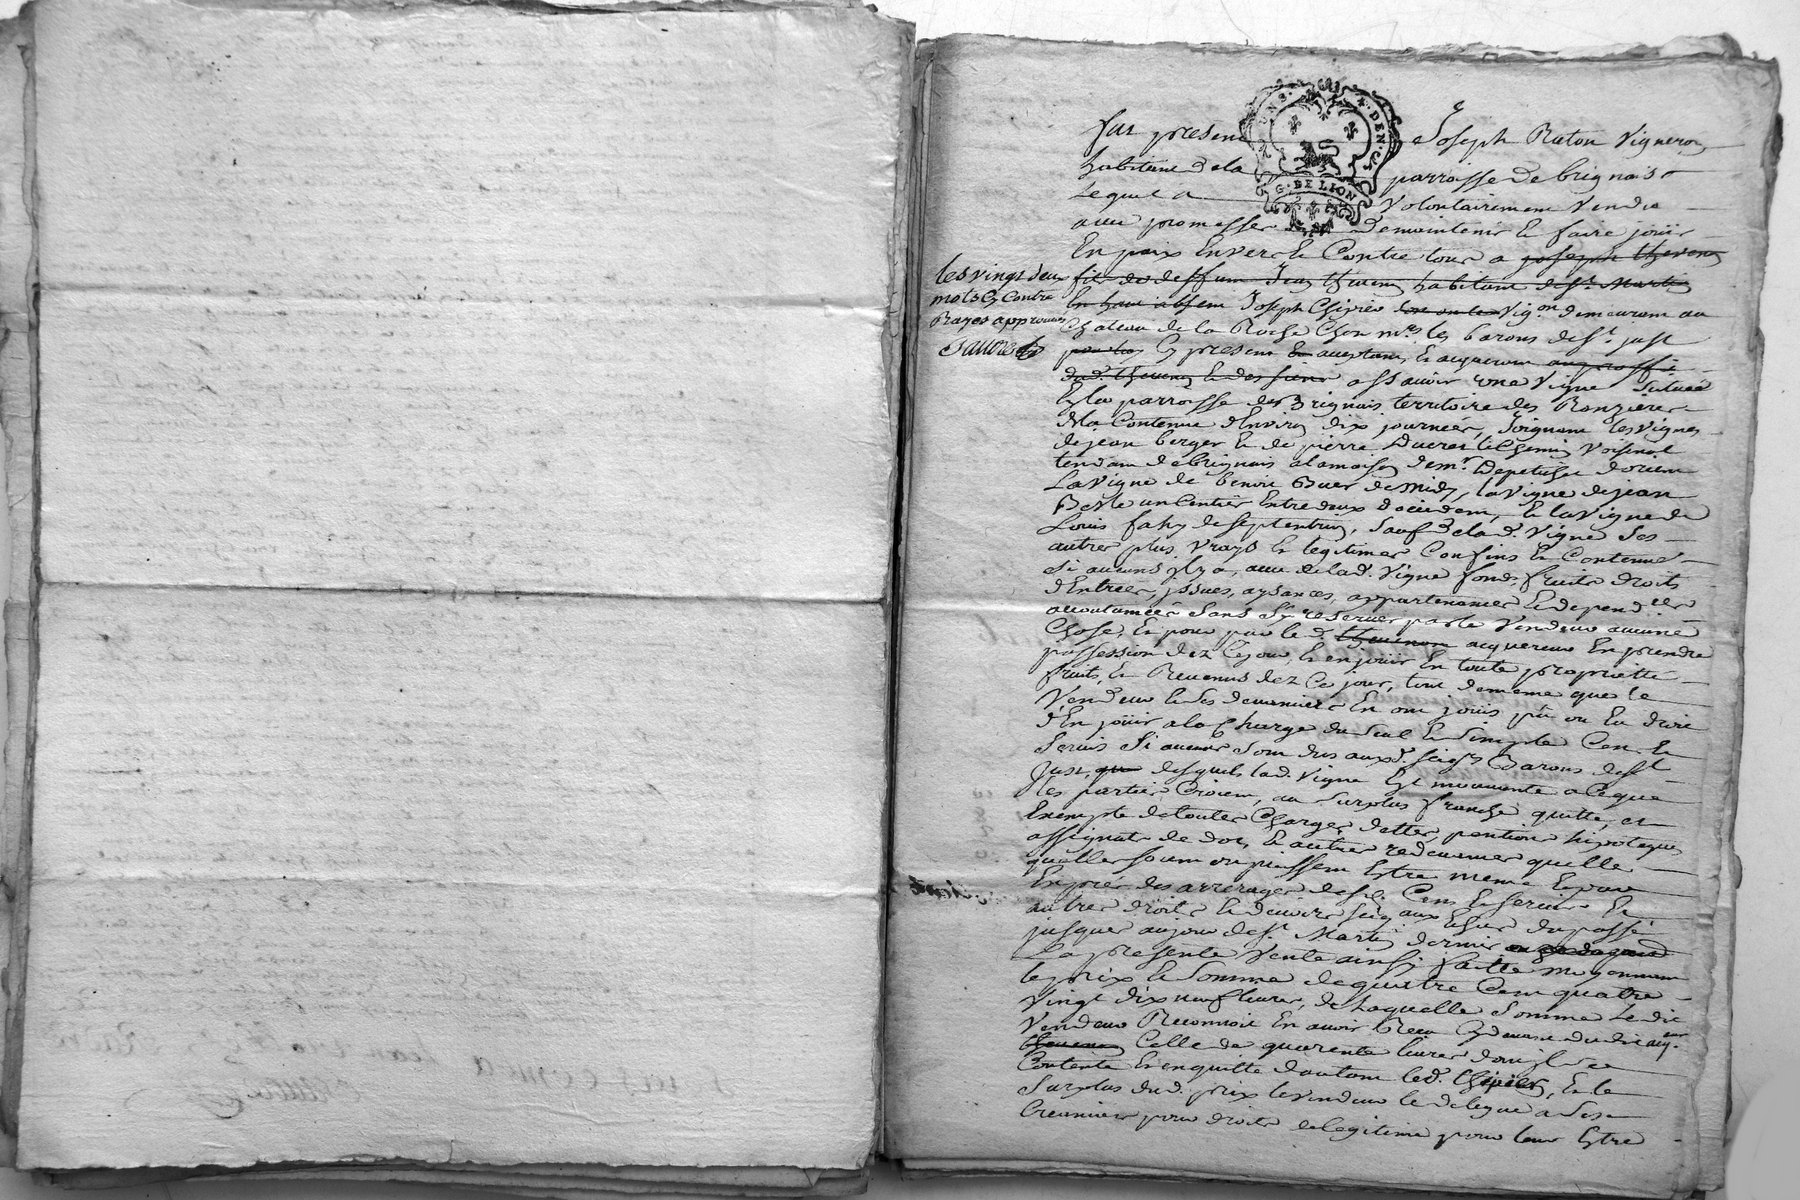 fut present Joseph Raton Vigneron
habitant de la parroisse de brignais
Lequel a volontairement Vendu
avec promesse de maintenir & faire joüir
En paix Envers & Contre tous a joseph thevenon
fils de deffunt Jean thevenon habitant de St. Martin
En haut absent Joseph Chipier Vigon demeurant au
Chateau de la Roche Chez mrs. les barons de St. just
Cy present acceptant & acquereur au proffit
dud. thevenon & des siens assavoir une Vigne Scituée
En la parroisse de Brignais territoire des Ronzieres
de la Contenue d'Environ dix journées, Joignant les Vignes
de jean berger & de pierre Ducret le Chemin Voisinal
tendant de brignais a la maison de mr. Depetichet d'orient
La Vigne de benoit Buer de midy, la Vigne de jean
Beste un Sentier Entredeux d'occident, & la Vigne de
Louis fahy de septentrion, Sauf de lad. Vigne Ses
autres plus Vrays & legitimes Confins & Contenue
Si aucuns Il y a, avec de lad. Vigne fonds, fruits droits
d'Entrées, jssues, aysances, appartenances & dependces
accoutumées Sans S'y reserver par le Vendeur aucune
Chose, Et pour par le d. thevenon acquereur En prendre
possession dez Ce jour, & en joüir En toute proprietté
fruits, & Revenus dez Ce jour, tout de meme que le
Vendeur & Ses devanciers En ont joüis pû ou Eu droit
d'En joüir a la Charge du Seul & Simple Cens &
Servis Si aucuns Sont dus auxd. Seigrs Barons de St.
Just, desquels lad. Vigne Est mouvante a Ce que
les parties Croient, au Surplus franche quitte, et
Exempte de toutes Charges dettes, pention hipoteques
assignats de dot, & autres redevances quelles
quelles soient ou puissent Estre meme Expres
Exprés des arrerages desd. Cens & servis &
autres droits & devoirs Seigaux Echus du passé
jusques au jour de St. Martin dernier
La presente Vente ainsy faitte moyennant
le prix & Somme de quatre Cent quatre
Vingt dix neuf livres, de Laquelle Somme Ledit
Vendeur Reconnoit En avoir Receu Cy devant dudit acqr.
thevenon Celle de quarente livres dont il s'en
Contente & En quitte d'autant led. Chipier, Et le
Surplus dud. prix le vendeur le delegue a Ses
Creanciers pour droits de legitime pour leur Estre
les vingt deux
mots Cy Contre
Rayés approuvés